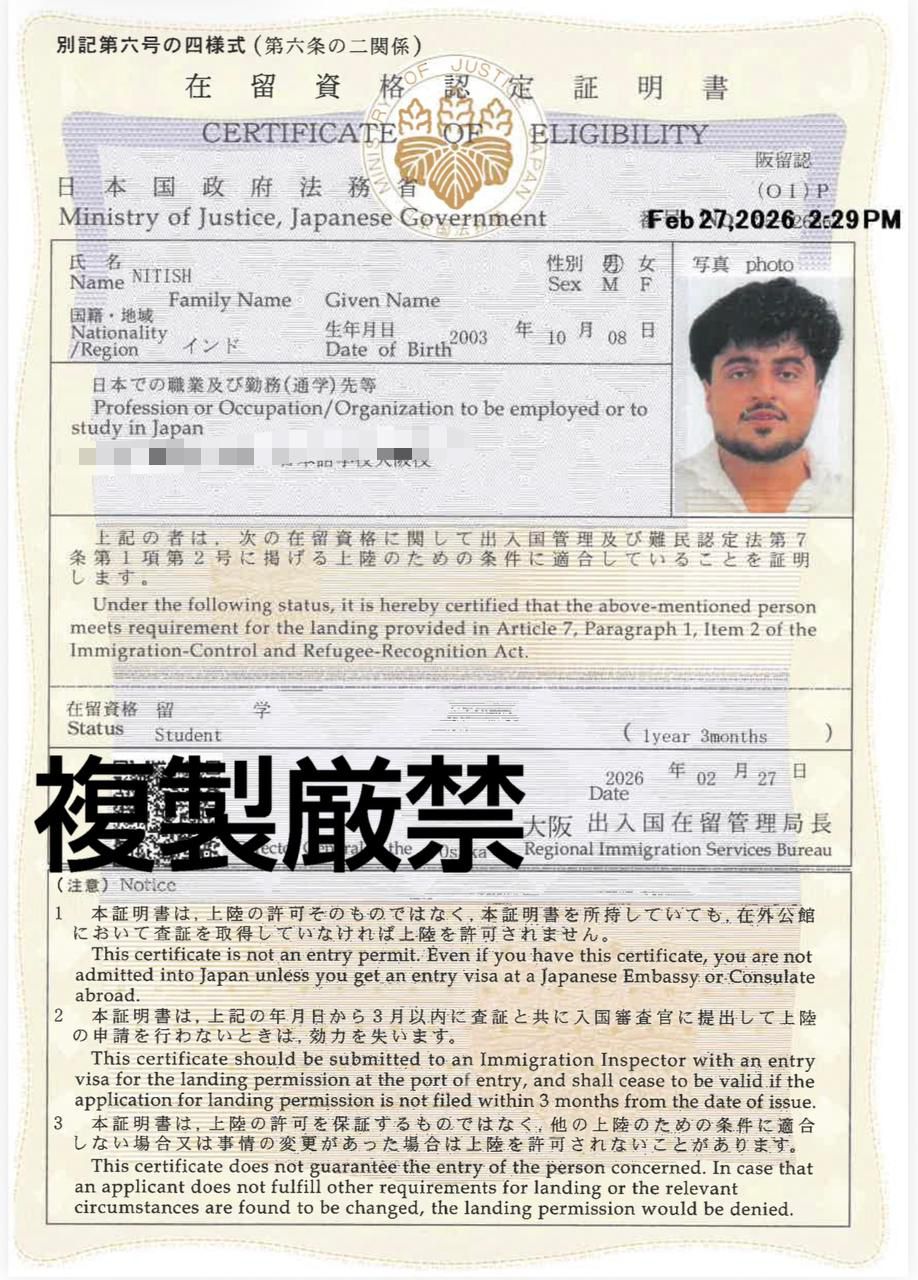 別記第六号の四様式(第六条の二関係)
在留資格認定証明書
CERTIFICATE OF ELIGIBILITY
MINISTRY OF JUSTICE JAPAN
阪留認
日本国政府法務省
(OI)P
Ministry of Justice, Japanese Government
Feb 27,2026 2:29 PM
氏名
Name NITISH
Family Name Given Name
性別 男 女
Sex M F
写真 photo
国籍・地域
Nationality
/Region インド
生年月日
Date of Birth 2003 年 10 月 08 日
日本での職業及び勤務(通学)先等
Profession or Occupation/Organization to be employed or to
study in Japan
日本語学校大阪校
上記の者は,次の在留資格に関して出入国管理及び難民認定法第7
条第1項第2号に掲げる上陸のための条件に適合していることを証明
します。
Under the following status, it is hereby certified that the above-mentioned person
meets requirement for the landing provided in Article 7, Paragraph 1, Item 2 of the
Immigration-Control and Refugee-Recognition Act.
在留資格 留学
Status Student ( 1year 3months )
2026 年 02 月 27 日
Date
複製厳禁
大阪 出入国在留管理局長
the Osaka Regional Immigration Services Bureau
(注意) Notice
1 本証明書は,上陸の許可そのものではなく,本証明書を所持していても,在外公館
において査証を取得していなければ上陸を許可されません。
This certificate is not an entry permit. Even if you have this certificate, you are not
admitted into Japan unless you get an entry visa at a Japanese Embassy or Consulate
abroad.
2 本証明書は,上記の年月日から3月以内に査証と共に入国審査官に提出して上陸
の申請を行わないときは,効力を失います。
This certificate should be submitted to an Immigration Inspector with an entry
visa for the landing permission at the port of entry, and shall cease to be valid if the
application for landing permission is not filed within 3 months from the date of issue.
3 本証明書は,上陸の許可を保証するものではなく,他の上陸のための条件に適合
しない場合又は事情の変更があった場合は上陸を許可されないことがあります。
This certificate does not guarantee the entry of the person concerned. In case that
an applicant does not fulfill other requirements for landing or the relevant
circumstances are found to be changed, the landing permission would be denied.